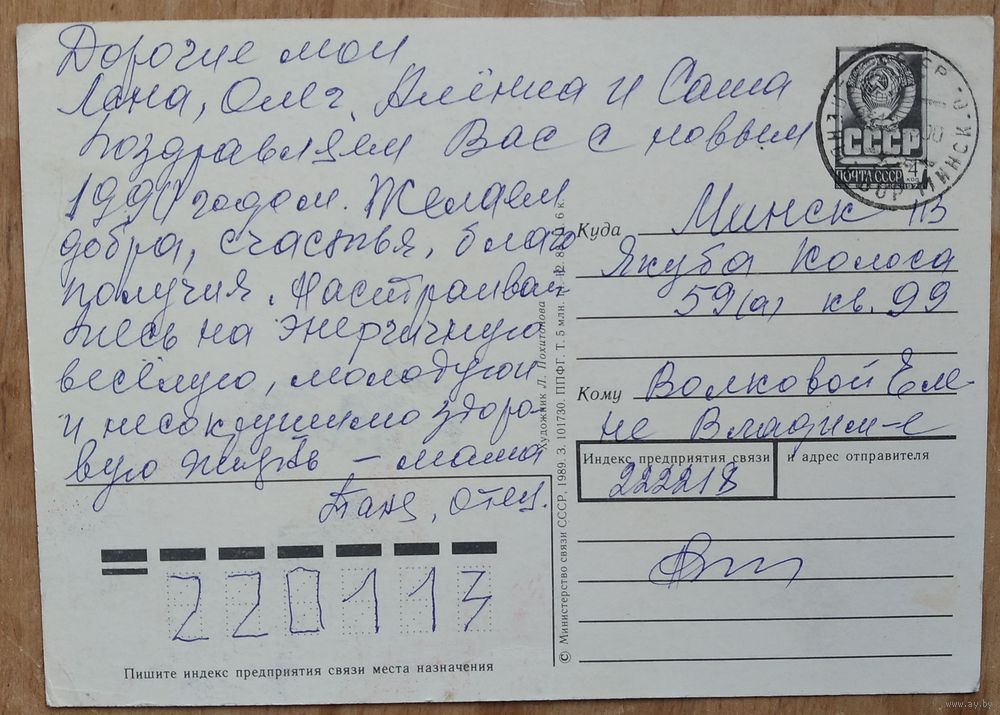 Дорогие мои
Лана, Олег, Алёнка и Саша
Поздравляем Вас с новым
1991 годом. Желаем
добра, счастья, благо
получия. Настраивай
тесь на энергичную
весёлую, молодую
и несокрушимо здоро-
вую жизнь – мама
Таня, отец.
СССР
ПОЧТА СССР
4
МИНСК
Куда Минск 113
Якуба Колоса
59(а) кв. 99
Кому Волковой Еле-
не Владим-е
Индекс предприятия связи и адрес отправителя
222218
220113
Пишите индекс предприятия связи места назначения
© Министерство связи СССР, 1989. З. 101730. ППФГ. Т. 5 млн.
Художник Л. Похитонова
www.ay.by